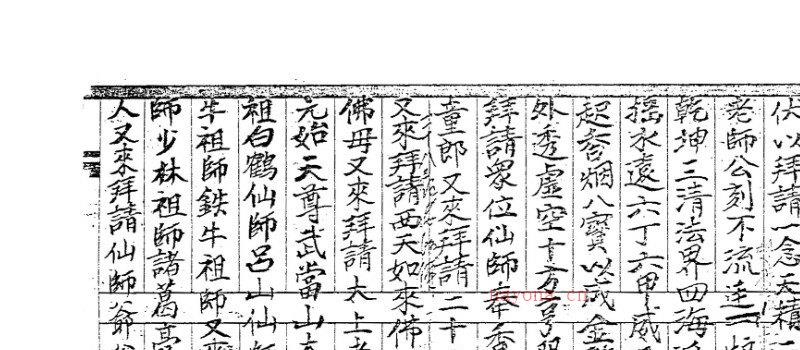 伏以拜請一念天積
老師公刻不流連
乾坤三清法界四海
搖水遠六丁六甲威
起香烟八寶以成金
外透虛空十方
拜請眾位仙師奉香
童郎又來拜請二十
又來拜請西天如來佛
佛母又來拜請太上老
元始天尊武當山
祖白鶴仙師呂山仙
牛祖師鉄牛祖師又來
師少林祖師諸葛亮
人又來拜請仙師爺